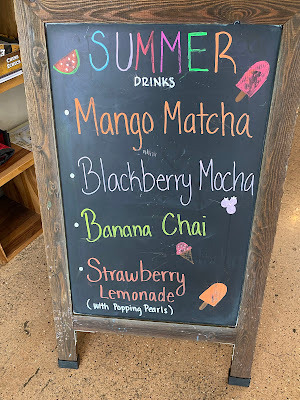 SUMMER
DRINKS
Mango Matcha
Blackberry Mocha
Banana Chai
Strawberry
Lemonade
(with Popping Pearls)